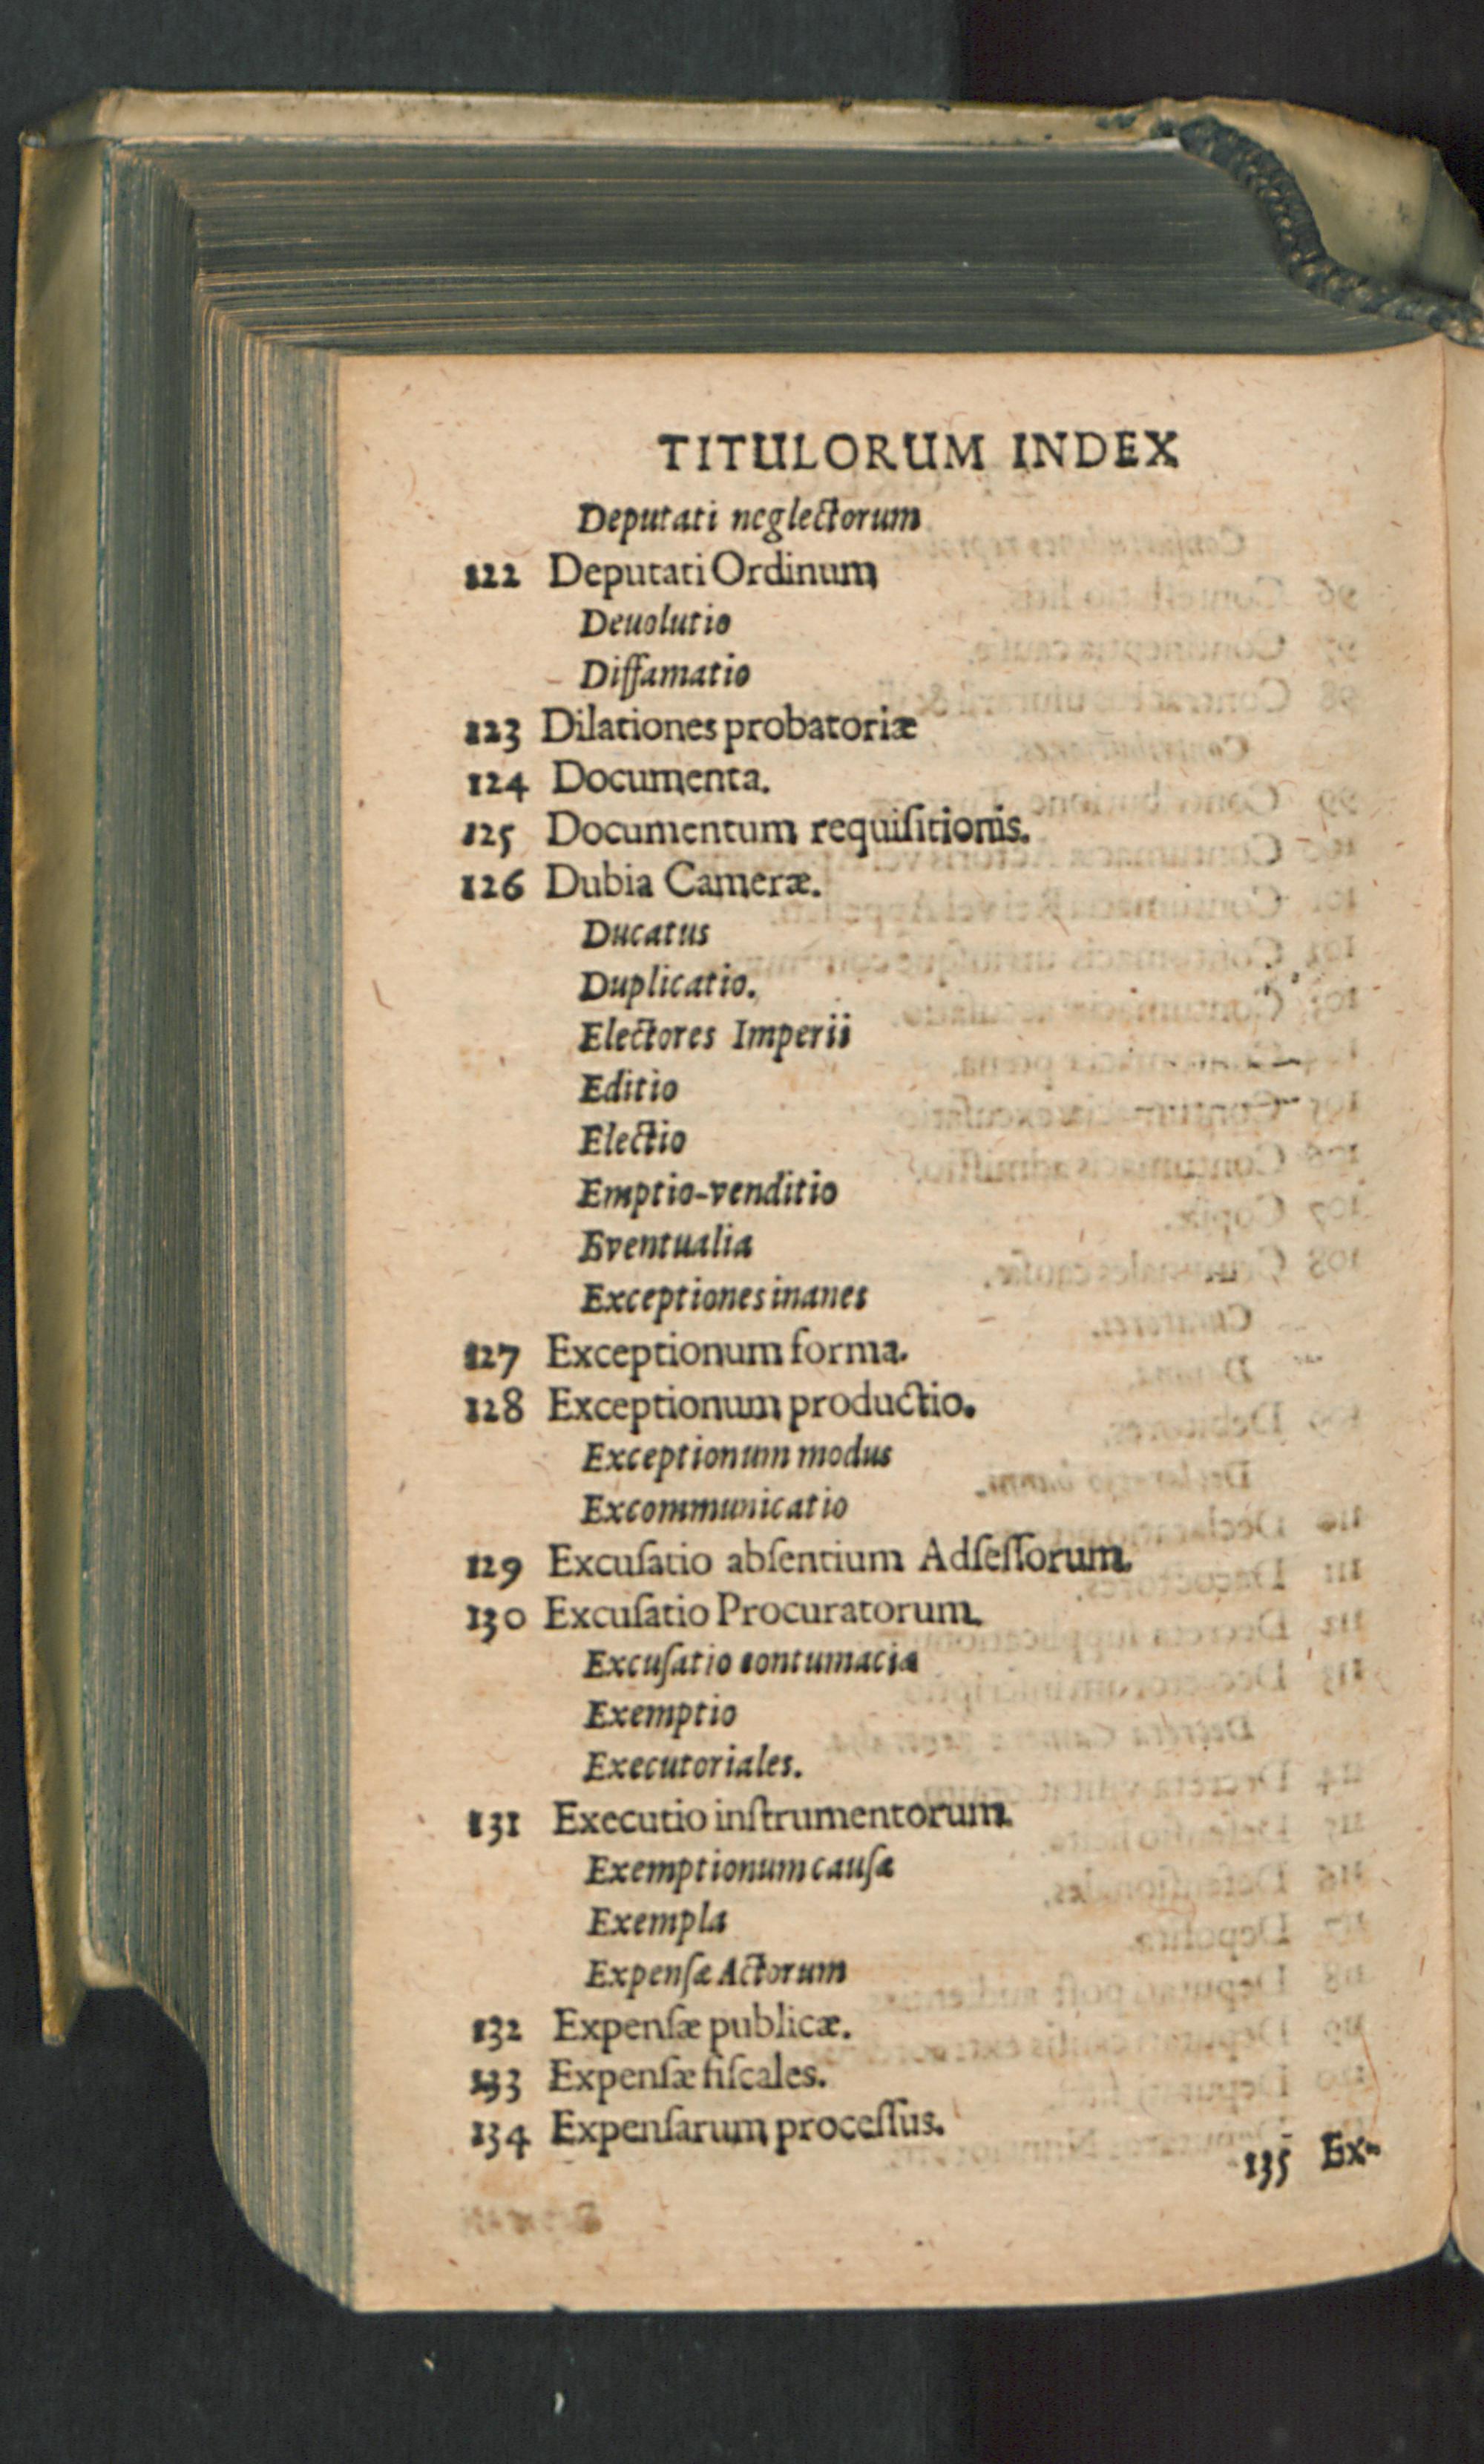 TITULORUM INDEX
Deputati neglectorum
122 Deputati Ordinum
Deuolutio
Diffamatio
123 Dilationes probatoriæ
124 Documenta.
125 Documentum requiſitionis.
126 Dubia Cameræ.
Ducatus
Duplicatio.
Electores Imperii
Editio
Electio
Emptio-venditio
Eventualia
Exceptiones inanes
127 Exceptionum forma.
128 Exceptionum productio.
Exceptionum modus
Excommunicatio
129 Excuſatio abſentium Adſeſſorum.
130 Excuſatio Procuratorum.
Excuſatio contumaciæ
Exemptio
Executoriales.
131 Executio inſtrumentorum.
Exemptionum cauſæ
Exempla
Expenſæ Actorum
132 Expenſæ publicæ.
133 Expenſæ fiſcales.
134 Expenſarum proceſſus.
135 Ex-